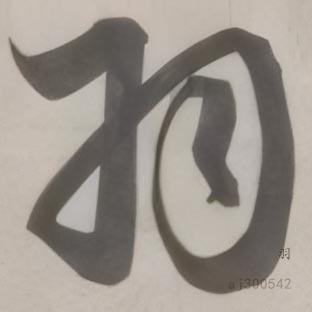 羽
羽
aj300542